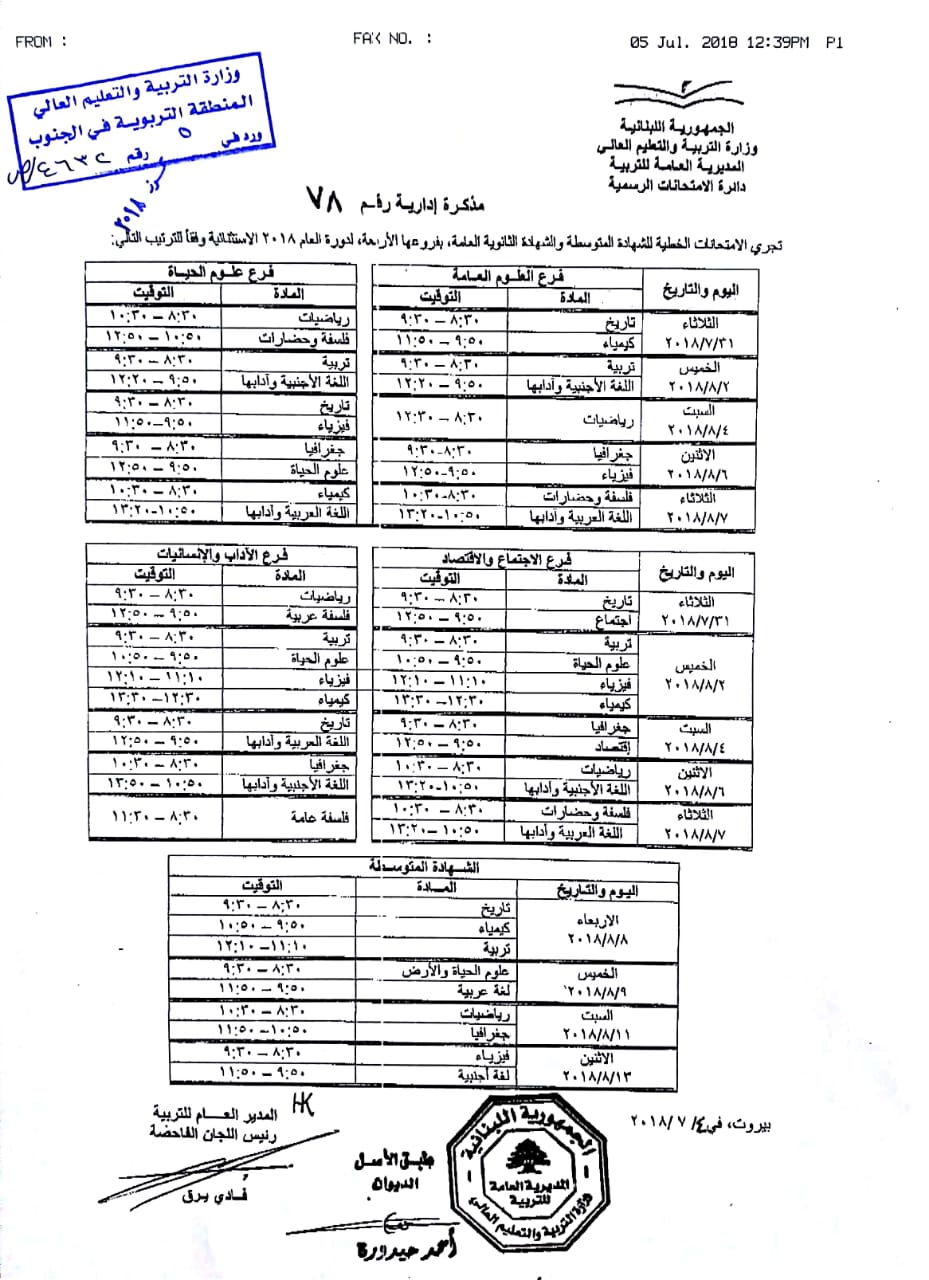 FROM :
FAX NO. :
05 Jul. 2018 12:39PM P1
وزارة التربية والتعليم العالي
المنطقة التربوية في الجنوب
ورد في ٥ رقم
٢٠١٨
الجمهورية اللبنانية
وزارة التربية والتعليم العالي
المديرية العامة للتربية
دائرة الامتحانات الرسمية
مذكرة إدارية رقم ٧٨
تجري الامتحانات الخطية للشهادة المتوسطة والشهادة الثانوية العامة، بفروعها الأربعة، لدورة العام ٢٠١٨ الاستثنائية وفقاً للترتيب التالي:
اليوم والتاريخ فرع العلوم العامة فرع علوم الحياة
المادة التوقيت المادة التوقيت
الثلاثاء تاريخ ٨:٣٠ – ٩:٣٠ رياضيات ٨:٣٠ – ١٠:٣٠
٢٠١٨/٧/٣١ كيمياء ٩:٥٠ – ١١:٥٠ فلسفة وحضارات ١٠:٥٠ – ١٢:٥٠
الخميس تربية ٨:٣٠ – ٩:٣٠ تربية ٨:٣٠ – ٩:٣٠
٢٠١٨/٨/٢ اللغة الأجنبية وآدابها ٩:٥٠ – ١٢:٢٠ اللغة الأجنبية وآدابها ٩:٥٠ – ١٢:٢٠
السبت رياضيات ٨:٣٠ – ١٢:٣٠ تاريخ ٨:٣٠ – ٩:٣٠
٢٠١٨/٨/٤ فيزياء ٩:٥٠–١١:٥٠
الاثنين جغرافيا ٨:٣٠-٩:٣٠ جغرافيا ٨:٣٠ – ٩:٣٠
٢٠١٨/٨/٦ فيزياء ٩:٥٠-١٢:٥٠ علوم الحياة ٩:٥٠ – ١٢:٥٠
الثلاثاء فلسفة وحضارات ٨:٣٠-١٠:٣٠ كيمياء ٨:٣٠ – ١٠:٣٠
٢٠١٨/٨/٧ اللغة العربية وآدابها ١٠:٥٠-١٣:٢٠ اللغة العربية وآدابها ١٠:٥٠-١٣:٢٠
اليوم والتاريخ فرع الاجتماع والاقتصاد فرع الآداب والإنسانيات
المادة التوقيت المادة التوقيت
الثلاثاء تاريخ ٨:٣٠ – ٩:٣٠ رياضيات ٨:٣٠ – ٩:٣٠
٢٠١٨/٧/٣١ اجتماع ٩:٥٠ – ١٢:٥٠ فلسفة عربية ٩:٥٠ – ١٢:٥٠
الخميس تربية ٨:٣٠ – ٩:٣٠ تربية ٨:٣٠ – ٩:٣٠
٢٠١٨/٨/٢ علوم الحياة ٩:٥٠ – ١٠:٥٠ علوم الحياة ٩:٥٠ – ١٠:٥٠
فيزياء ١١:١٠ – ١٢:١٠ فيزياء ١١:١٠ – ١٢:١٠
كيمياء ١٢:٣٠ – ١٣:٣٠ كيمياء ١٢:٣٠ – ١٣:٣٠
السبت جغرافيا ٨:٣٠ – ٩:٣٠ تاريخ ٨:٣٠ – ٩:٣٠
٢٠١٨/٨/٤ إقتصاد ٩:٥٠ – ١٢:٥٠ اللغة العربية وآدابها ٩:٥٠ – ١٢:٥٠
الاثنين رياضيات ٨:٣٠ – ١٠:٣٠ جغرافيا ٨:٣٠ – ١٠:٣٠
٢٠١٨/٨/٦ اللغة الأجنبية وآدابها ١٠:٥٠-١٣:٢٠ اللغة الأجنبية وآدابها ١٠:٥٠ – ١٣:٥٠
الثلاثاء فلسفة وحضارات ٨:٣٠ – ١٠:٣٠ فلسفة عامة ٨:٣٠ – ١١:٣٠
٢٠١٨/٨/٧ اللغة العربية وآدابها ١٠:٥٠ – ١٣:٢٠
الشهادة المتوسطة
اليوم والتاريخ المادة التوقيت
الاربعاء تاريخ ٨:٣٠ – ٩:٣٠
٢٠١٨/٨/٨ كيمياء ٩:٥٠ – ١٠:٥٠
تربية ١١:١٠–١٢:١٠
الخميس علوم الحياة والأرض ٨:٣٠ – ٩:٣٠
٢٠١٨/٨/٩ لغة عربية ٩:٥٠ – ١١:٥٠
السبت رياضيات ٨:٣٠ – ١٠:٣٠
٢٠١٨/٨/١١ جغرافيا ١٠:٥٠ – ١١:٥٠
الاثنين فيزياء ٨:٣٠ – ٩:٣٠
٢٠١٨/٨/١٣ لغة أجنبية ٩:٥٠ – ١١:٥٠
بيروت، في ٢٠١٨/٧/٤
HK
المدير العام للتربية
رئيس اللجان الفاحصة
فادي يرق
طبق الأصل
الديوان
أحمد حيدورة
الجمهورية اللبنانية
المديرية العامة
للتربية
وزارة التربية والتعليم العالي